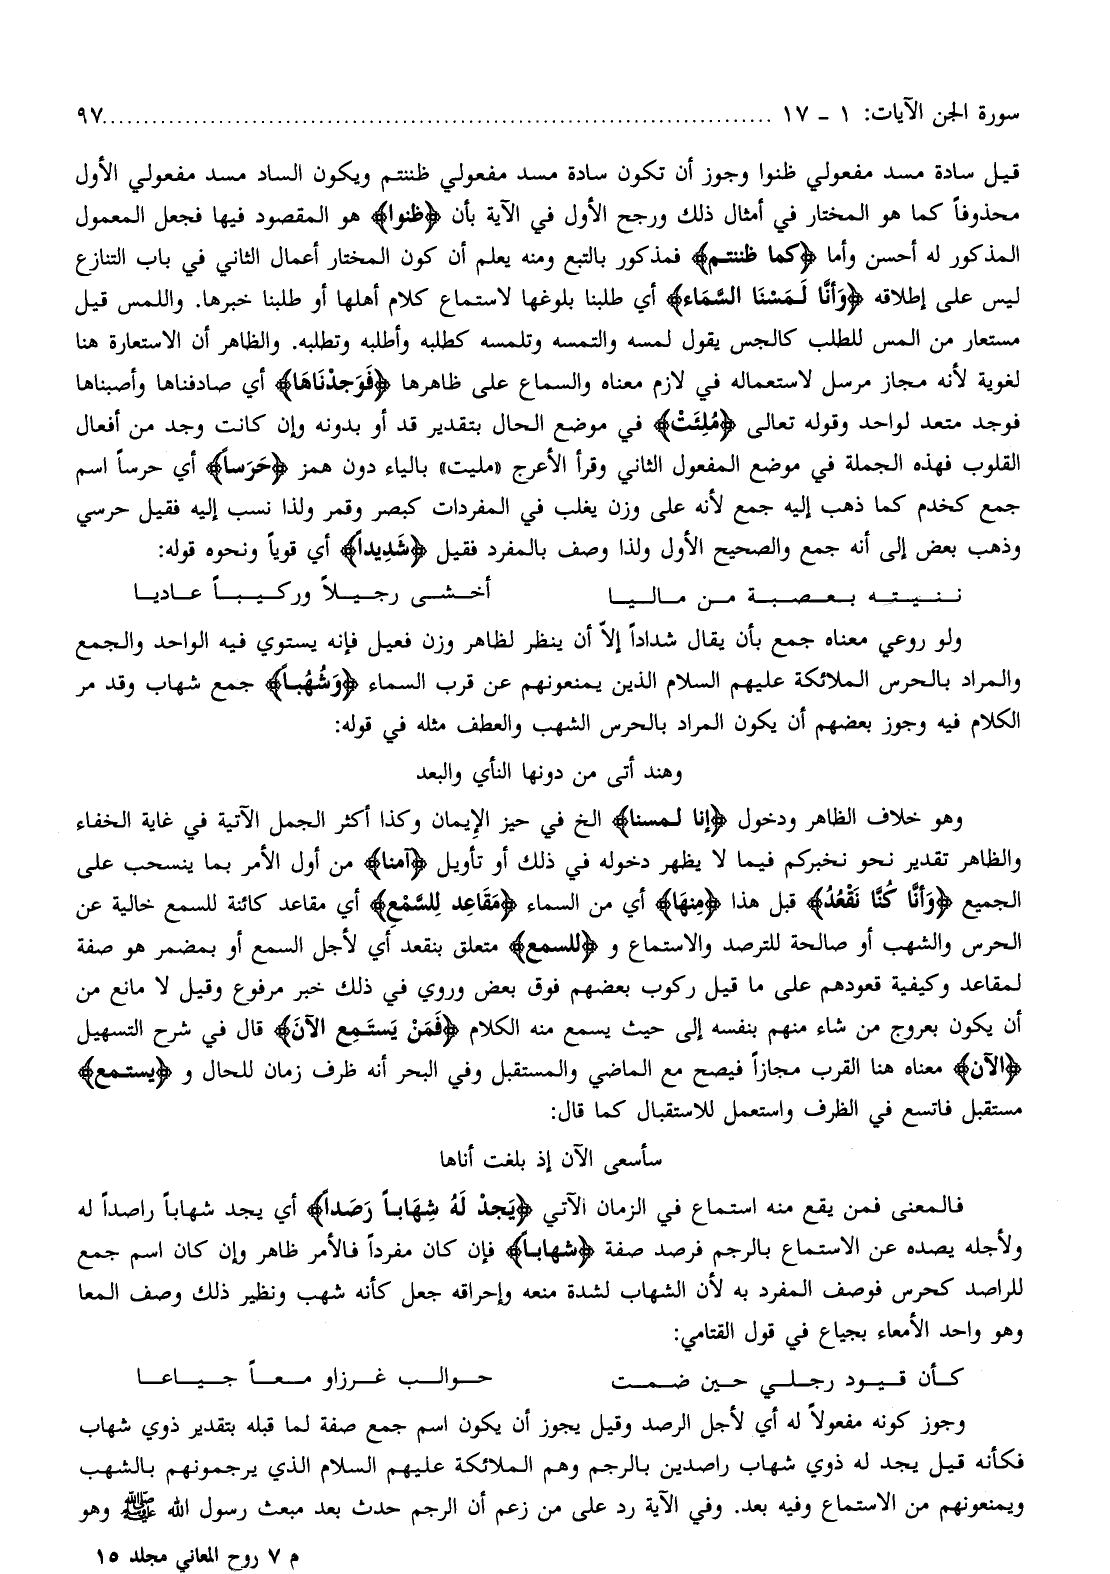 سورة الجن الآيات: ١ - ١٧ ........................................................................ ٩٧
قيل سادة مسد مفعولي ظنوا وجوز أن تكون سادة مسد مفعولي ظننتم ويكون الساد مسد مفعولي الأول
محذوفاً كما هو المختار في أمثال ذلك ورجح الأول في الآية بأن ﴿ظنوا﴾ هو المقصود فيها فجعل المعمول
المذكور له أحسن وأما ﴿كما ظننتم﴾ فمذكور بالتبع ومنه يعلم أن كون المختار أعمال الثاني في باب التنازع
ليس على إطلاقه ﴿وَأَنَّا لَمَسْنَا السَّمَاء﴾ أي طلبنا بلوغها لاستماع كلام أهلها أو طلبنا خبرها. واللمس قيل
مستعار من المس للطلب كالجس يقول لمسه والتمسه وتلمسه كطلبه وأطلبه وتطلبه. والظاهر أن الاستعارة هنا
لغوية لأنه مجاز مرسل لاستعماله في لازم معناه والسماع على ظاهرها ﴿فَوَجدْنَاهَا﴾ أي صادفناها وأصبناها
فوجد متعد لواحد وقوله تعالى ﴿مُلِئَتْ﴾ في موضع الحال بتقدير قد أو بدونه وإن كانت وجد من أفعال
القلوب فهذه الجملة في موضع المفعول الثاني وقرأ الأعرج «مليت» بالياء دون همز ﴿حَرَساً﴾ أي حرساً اسم
جمع كخدم كما ذهب إليه جمع لأنه على وزن يغلب في المفردات كبصر وقمر ولذا نسب إليه فقيل حرسي
وذهب بعض إلى أنه جمع والصحيح الأول ولذا وصف بالمفرد فقيل ﴿شَدِيداً﴾ أي قوياً ونحوه قوله:
بنيته بعصبة من ماليا أخشى رجيلاً وركيباً عاديا
ولو روعي معناه جمع بأن يقال شداداً إلاّ أن ينظر لظاهر وزن فعيل فإنه يستوي فيه الواحد والجمع
والمراد بالحرس الملائكة عليهم السلام الذين يمنعونهم عن قرب السماء ﴿وَشُهُباً﴾ جمع شهاب وقد مر
الكلام فيه وجوز بعضهم أن يكون المراد بالحرس الشهب والعطف مثله في قوله:
وهند أتى من دونها النأي والبعد
وهو خلاف الظاهر ودخول ﴿إنا لمسنا﴾ الخ في حيز الإيمان وكذا أكثر الجمل الآتية في غاية الخفاء
والظاهر تقدير نحو نخبركم فيما لا يظهر دخوله في ذلك أو تأويل ﴿آمنا﴾ من أول الأمر بما ينسحب على
الجميع ﴿وَأَنَّا كُنَّا نَقْعُدُ﴾ قبل هذا ﴿مِنهَا﴾ أي من السماء ﴿مَقَاعِد لِلسَّمْعِ﴾ أي مقاعد كائنة للسمع خالية عن
الحرس والشهب أو صالحة للترصد والاستماع و ﴿للسمع﴾ متعلق بنقعد أي لأجل السمع أو بمضمر هو صفة
لمقاعد وكيفية قعودهم على ما قيل ركوب بعضهم فوق بعض وروي في ذلك خبر مرفوع وقيل لا مانع من
أن يكون بعروج من شاء منهم بنفسه إلى حيث يسمع منه الكلام ﴿فَمَنْ يَستَمِع الآنَ﴾ قال في شرح التسهيل
﴿الآن﴾ معناه هنا القرب مجازاً فيصح مع الماضي والمستقبل وفي البحر أنه ظرف زمان للحال و ﴿يستمع﴾
مستقبل فاتسع في الظرف واستعمل للاستقبال كما قال:
سأسعى الآن إذ بلغت أناها
فالمعنى فمن يقع منه استماع في الزمان الآتي ﴿يَجدْ لَهُ شِهَاباً رَصَداً﴾ أي يجد شهاباً راصداً له
ولأجله يصده عن الاستماع بالرجم فرصد صفة ﴿شهاباً﴾ فإن كان مفرداً فالأمر ظاهر وإن كان اسم جمع
للراصد كحرس فوصف المفرد به لأن الشهاب لشدة منعه وإحراقه جعل كأنه شهب ونظير ذلك وصف المعا
وهو واحد الأمعاء بجياع في قول القتامي:
كأن قيود رجلي حين ضمت حوالب غرزاو معاً جياعا
وجوز كونه مفعولاً له أي لأجل الرصد وقيل يجوز أن يكون اسم جمع صفة لما قبله بتقدير ذوي شهاب
فكأنه قيل يجد له ذوي شهاب راصدين بالرجم وهم الملائكة عليهم السلام الذي يرجمونهم بالشهب
ويمنعونهم من الاستماع وفيه بعد. وفي الآية رد على من زعم أن الرجم حدث بعد مبعث رسول الله ﷺ وهو
م ٧ روح المعاني مجلد ١٥